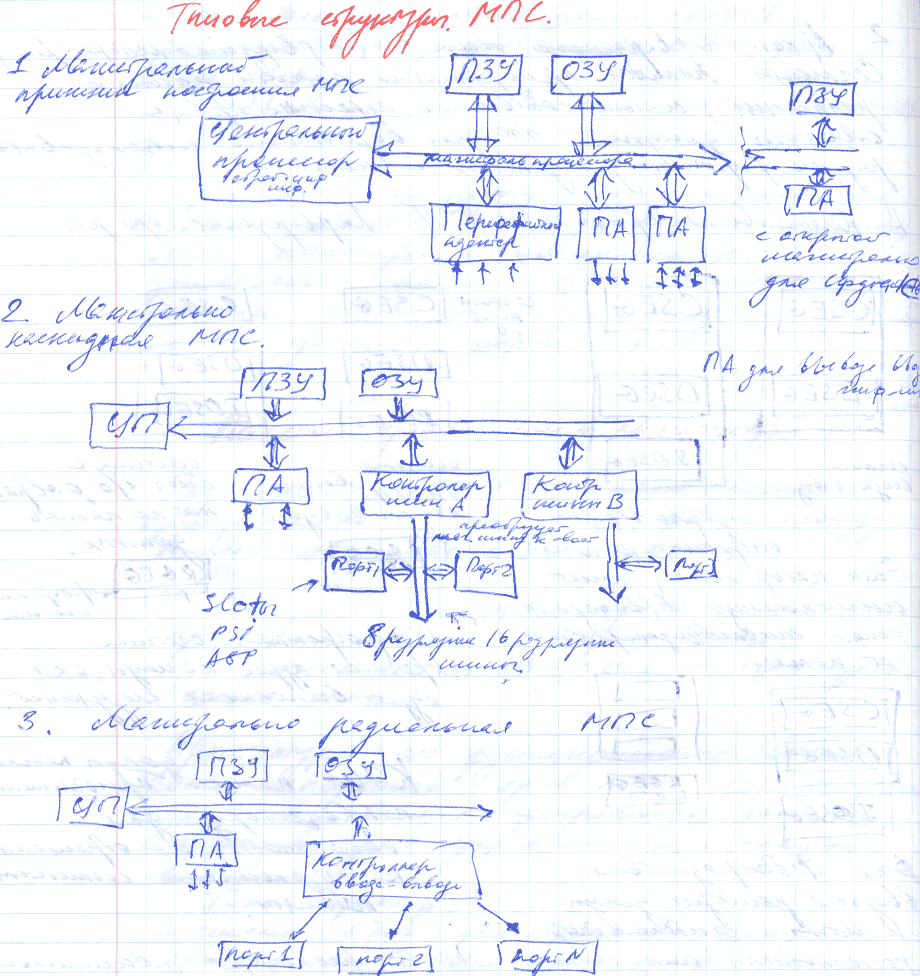 Типовые структуры. МПС.
1 Магистральный
принцип построения МПС
ПЗУ ОЗУ
Центральный
процессор
магистраль процессора
ПЗУ
ПА
Периферийный
адаптер
ПА ПА
с открытой
магистралью
для
2. Магистрально
каскадная МПС.
ПА для вывода
ПЗУ ОЗУ
ЦП
ПА
Контролер
шин А
Контр
шин В
преобразует
Порт1 Порт2 Порт3
Slotы
PSi
АGP
8 разрядные 16 разрядные
шины
3. Магистрально радиальная МПС
ПЗУ ОЗУ
ЦП
ПА
Контроллер
ввода-вывода
порт1 порт2 портN